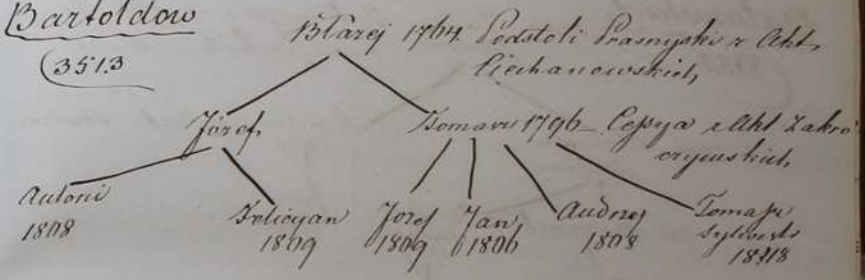 Bartoldow
Błażej 1764. Podstoli Prasnyski z Akt.
3513
Ciechanowskich,
Józef,
Tomasz 1796 – Cessya z Akt Zakro-
czymskich,
Antoni
1808
Felicyan
1809
Józef
1809
Jan,
1806
Andrzej
1803
Tomasz
Sylwester
1818